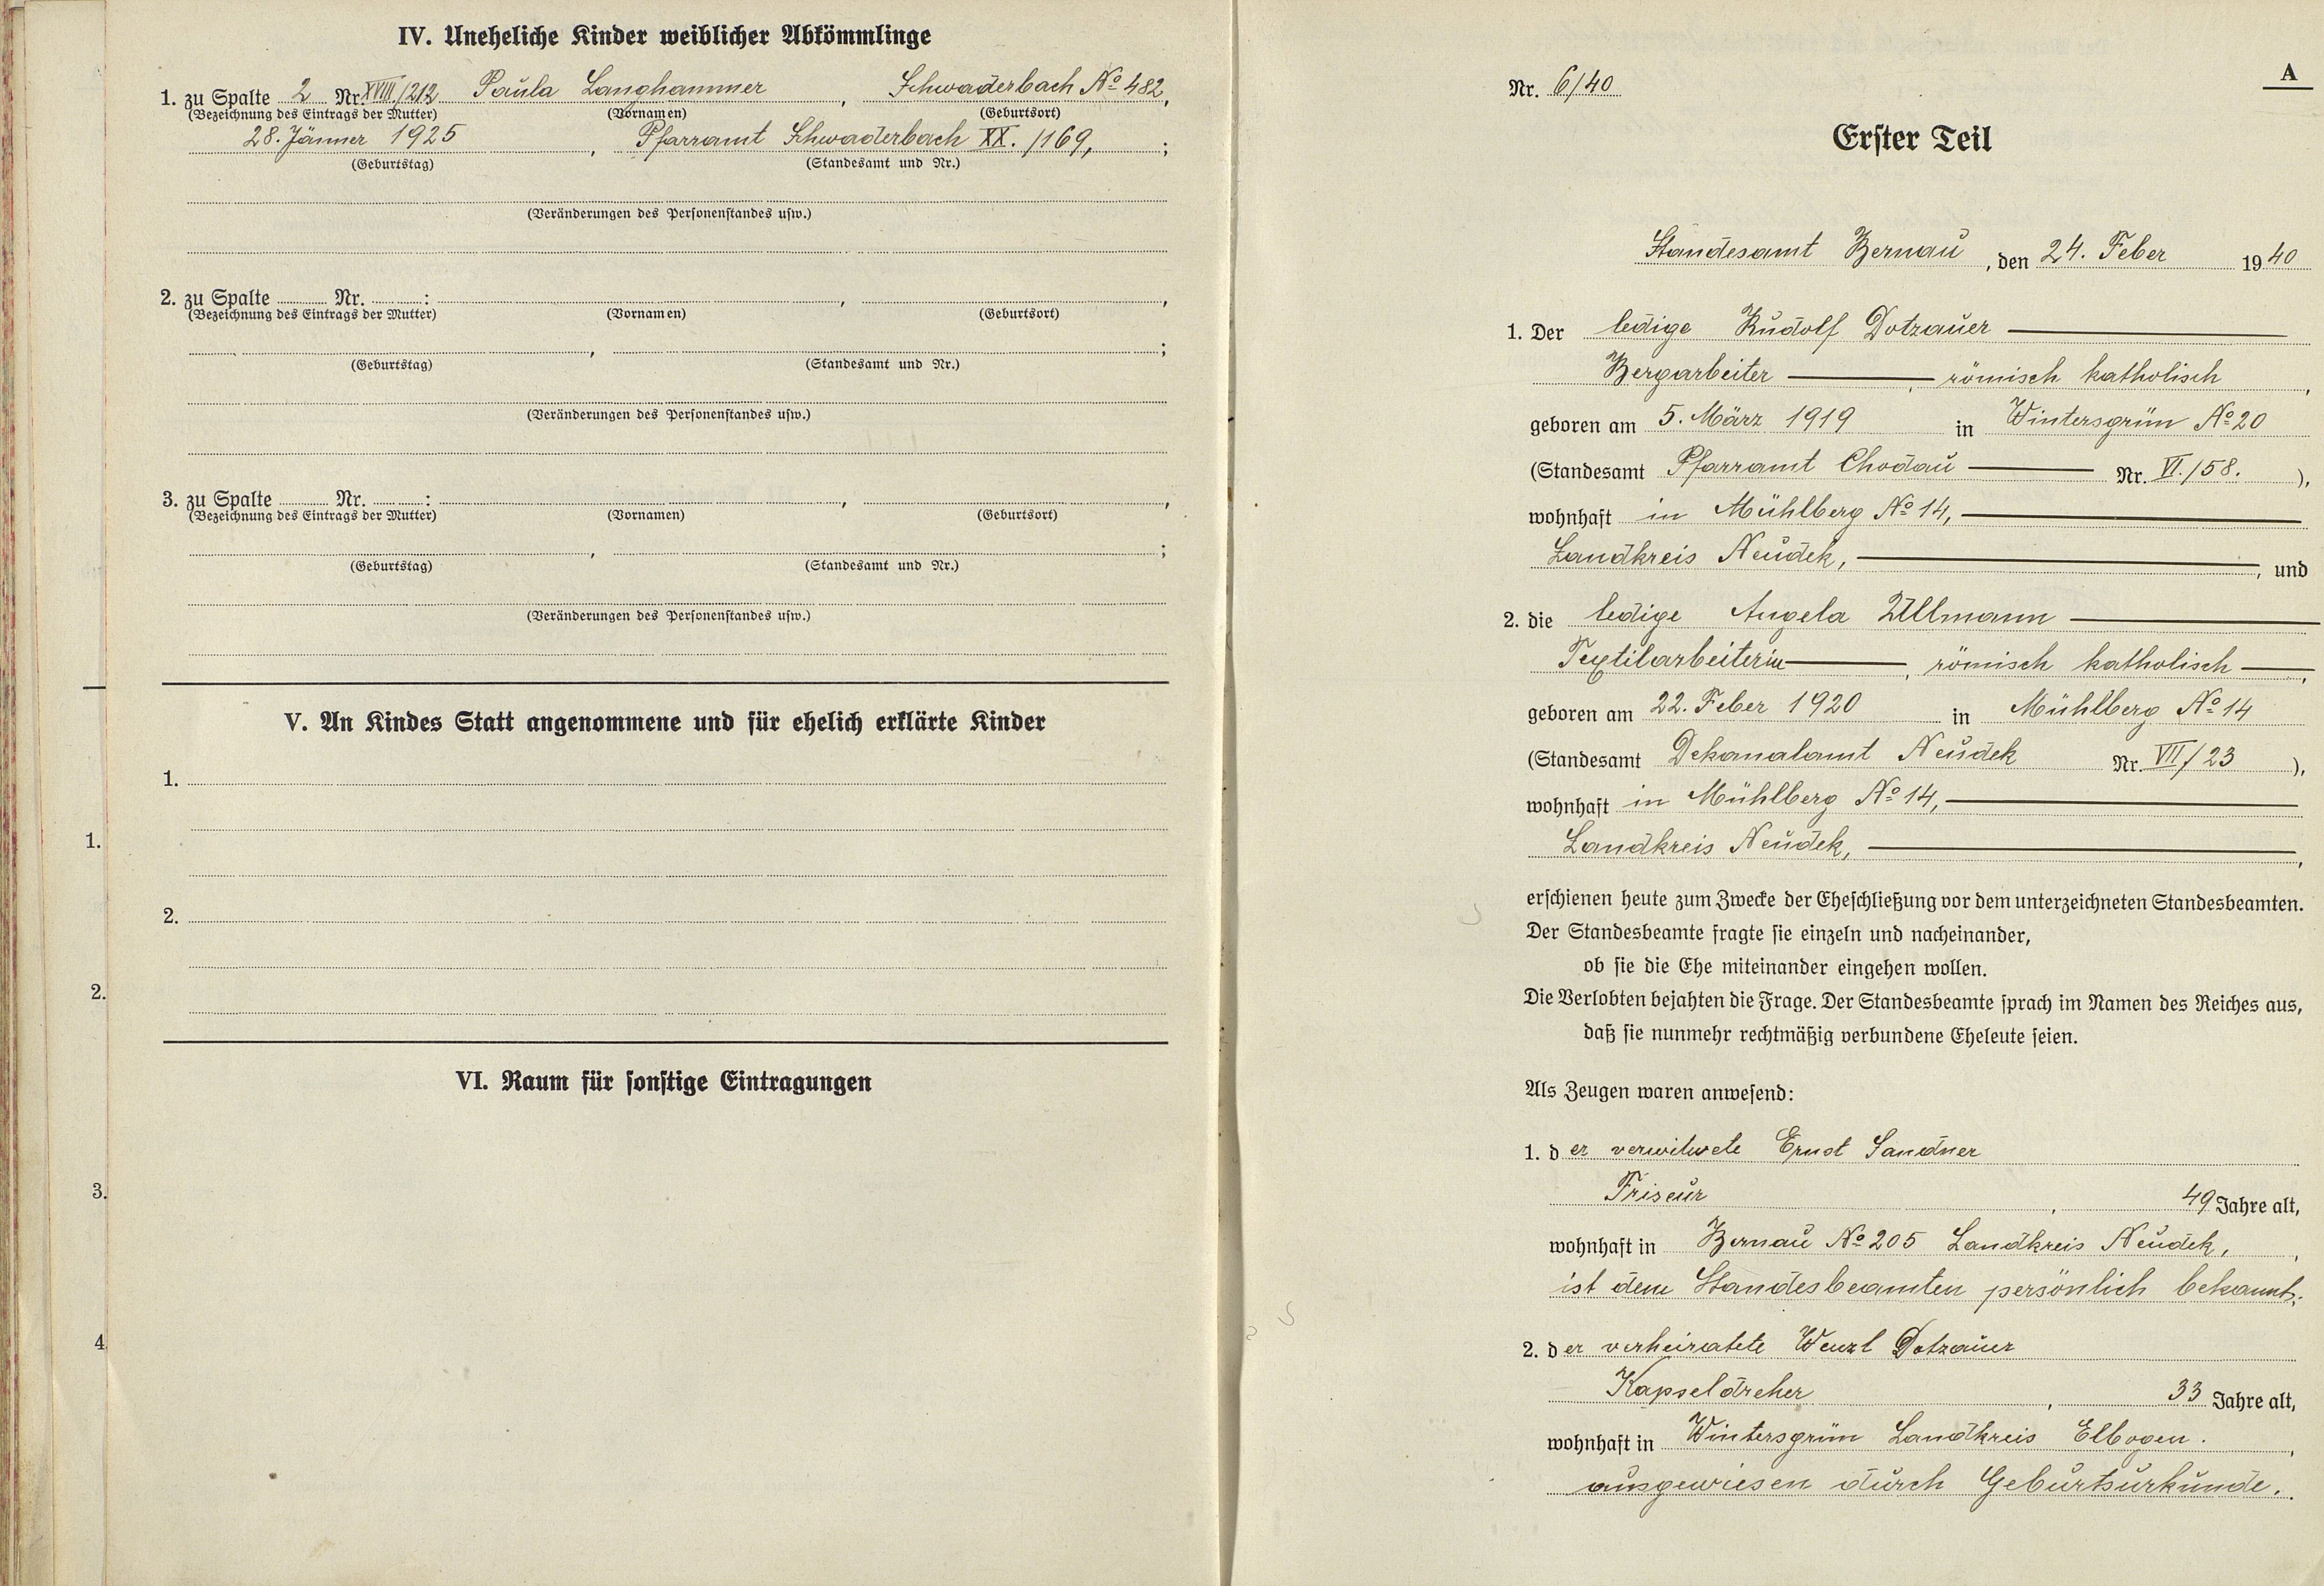 IV. Uneheliche Kinder weiblicher Abkömmlinge
1. zu Spalte 2 Nr. XVIII/212 Paula Langhammer, Schwaderbach No 482,
(Bezeichnung des Eintrags der Mutter) (Vornamen) (Geburtsort)
28. Jänner 1925, Pfarramt Schwaderbach XX./169,;
(Geburtstag) (Standesamt und Nr.)
(Veränderungen des Personenstandes usw.)
2. zu Spalte Nr. : , ,
(Bezeichnung des Eintrags der Mutter) (Vornamen) (Geburtsort)
, ;
(Geburtstag) (Standesamt und Nr.)
(Veränderungen des Personenstandes usw.)
3. zu Spalte Nr. : , ,
(Bezeichnung des Eintrags der Mutter) (Vornamen) (Geburtsort)
, ;
(Geburtstag) (Standesamt und Nr.)
(Veränderungen des Personenstandes usw.)
V. An Kindes Statt angenommene und für ehelich erklärte Kinder
1.
2.
VI. Raum für sonstige Eintragungen
1.
2.
3.
4.
A
Nr. 6/40
Erster Teil
Standesamt Bernau, den 24. Feber 1940
1. Der ledige Rudolf Dotzauer
Bergarbeiter, römisch katholisch,
geboren am 5. März 1919 in Wintersgrün No 20
(Standesamt Pfarramt Chodau Nr. VI./58.),
wohnhaft in Mühlberg No 14,
Landkreis Neudek, , und
2. die ledige Angela Ullmann
Textilarbeiterin, römisch katholisch,
geboren am 22. Feber 1920 in Mühlberg No 14
(Standesamt Dekanalamt Neudek Nr. VII/23),
wohnhaft in Mühlberg No 14,
Landkreis Neudek, ,
erschienen heute zum Zwecke der Eheschließung vor dem unterzeichneten Standesbeamten.
Der Standesbeamte fragte sie einzeln und nacheinander,
ob sie die Ehe miteinander eingehen wollen.
Die Verlobten bejahten die Frage. Der Standesbeamte sprach im Namen des Reiches aus,
daß sie nunmehr rechtmäßig verbundene Eheleute seien.
Als Zeugen waren anwesend:
1. der verwitwete Ernst Sandner
Friseur, 49 Jahre alt,
wohnhaft in Bernau No 205 Landkreis Neudek, ,
ist dem Standesbeamten persönlich bekannt;
2. der verheiratete Wenzl Dotzauer
Kapseldreher, 33 Jahre alt,
wohnhaft in Wintersgrün Landkreis Elbogen. ,
ausgewiesen durch Geburtsurkunde.